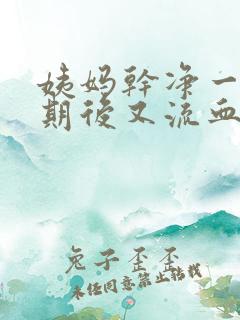 姨妈幹净一
期後又流血
兔子歪歪
未经同意禁止转载